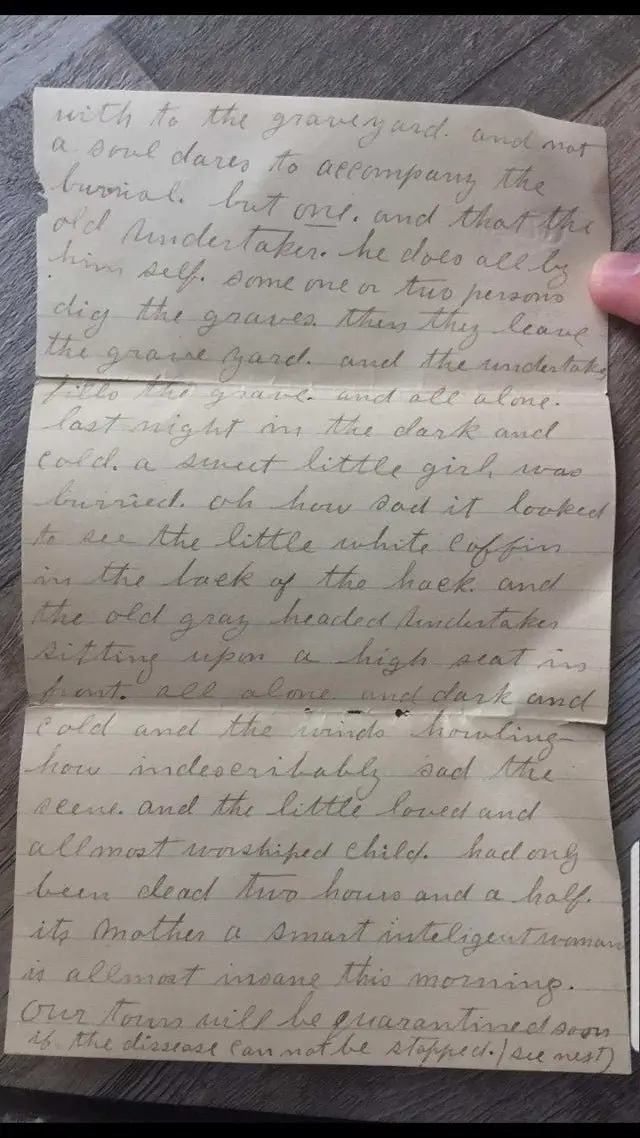 with to the graveyard. and not
a soul dares to accompany the
burrial. but one. and that the
old Undertaker. he does all by
him self. some one or two persons
dig the graves. then they leave
the grave yard. and the undertaker
fills the grave. and all alone.
last night in the dark and
cold. a sweet little girl was
burried. oh how sad it looked
to see the little white coffin
in the back of the hack. and
the old gray headed Undertaker
sitting upon a high seat in
front. all alone and dark and
cold and the winds howling
how indescribably sad the
scene. and the little loved and
allmost worshiped child. had only
been dead two hours and a half.
its Mother a smart inteligent woman
is allmost insane this morning.
Our town will be quarantined soon
if the dissease can not be stopped. (see nest)